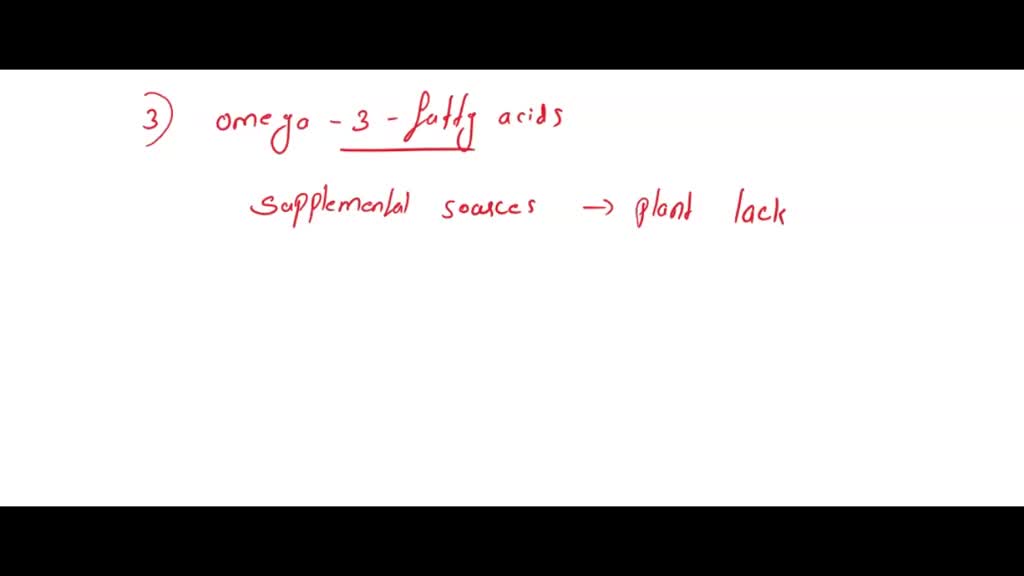 3) omega - 3 - fatty acids
supplemental sources → plant lack